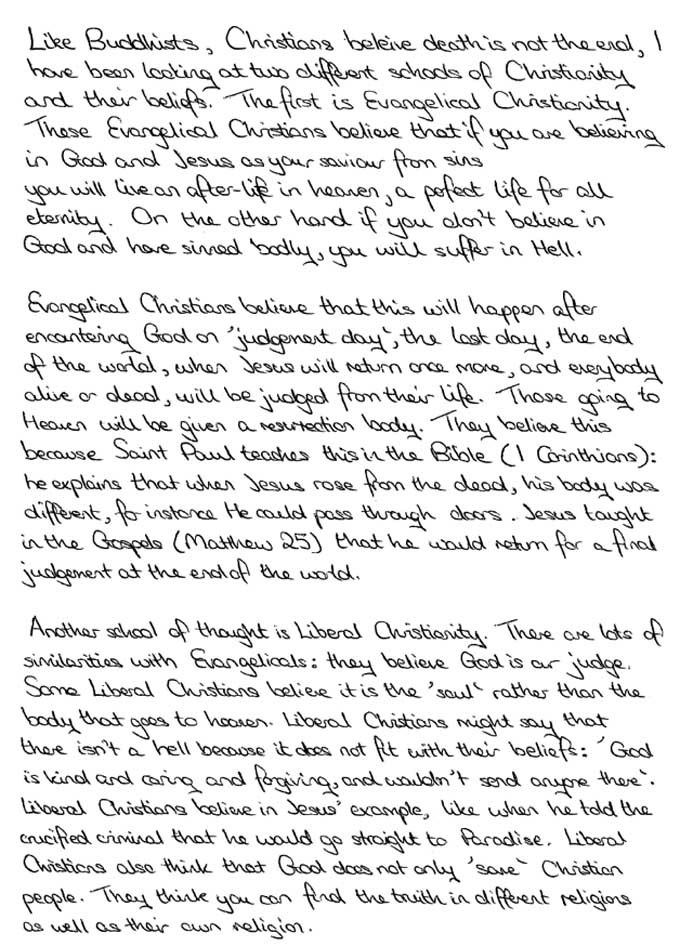 Like Buddhists, Christians beleive death is not the end, I
have been looking at two different schools of Christianity
and their beliefs. The first is Evangelical Christianity.
These Evangelical Christians believe that if you are believing
in God and Jesus as your saviour from sins
you will live an after-life in heaven, a pefect life for all
eternity. On the other hand if you don't believe in
God and have sinned badly, you will suffer in Hell.

Evangelical Christians believe that this will happen after
encontering God on 'judgement day', the last day, the end
of the world, when Jesus will return once more, and everybody
alive or dead, will be judged from their life. Those going to
Heaven will be given a resurrection body. They believe this
because Saint Paul teaches this in the Bible (1 Corinthians):
he explains that when Jesus rose from the dead, his body was
different, for instance He could pass through doors. Jesus taught
in the Gospels (Matthew 25) that he would return for a final
judgement at the end of the world.

Another school of thought is Liberal Christianity. There are lots of
similarities with Evangelicals: they believe God is our judge.
Some Liberal Christians believe it is the 'soul' rather than the
body that goes to heaven. Liberal Christians might say that
there isn't a hell because it does not fit with their beliefs: 'God
is kind and caring and forgiving, and wouldn't send anyone there'.
Liberal Christians believe in Jesus' example, like when he told the
crucified criminal that he would go straight to Paradise. Liberal
Christians also think that God does not only 'save' Christian
people. They think you can find the truth in different religions
as well as their own religion.